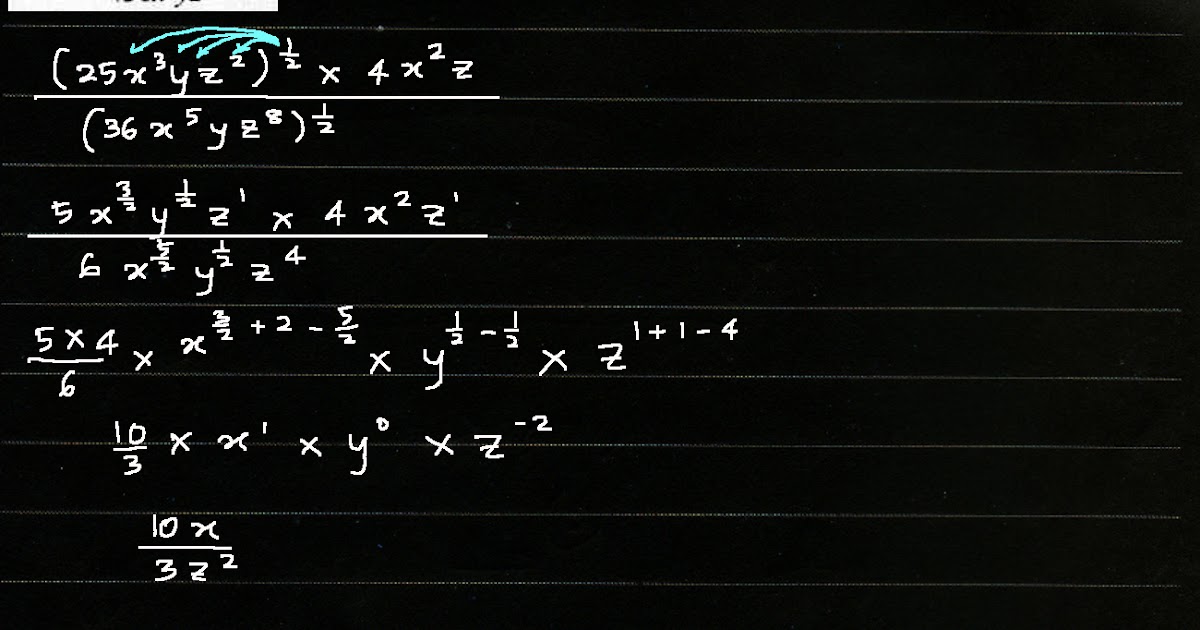 (25x³yz²)^½ × 4x²z
(36x⁵yz⁸)^½
5x^(3/2) y^½ z¹ × 4x²z¹
6x^(5/2) y^½ z⁴
5×4/6 × x^(3/2 + 2 − 5/2) × y^(½ − ½) × z^(1+1−4)
10/3 × x¹ × y⁰ × z⁻²
10x
3z²